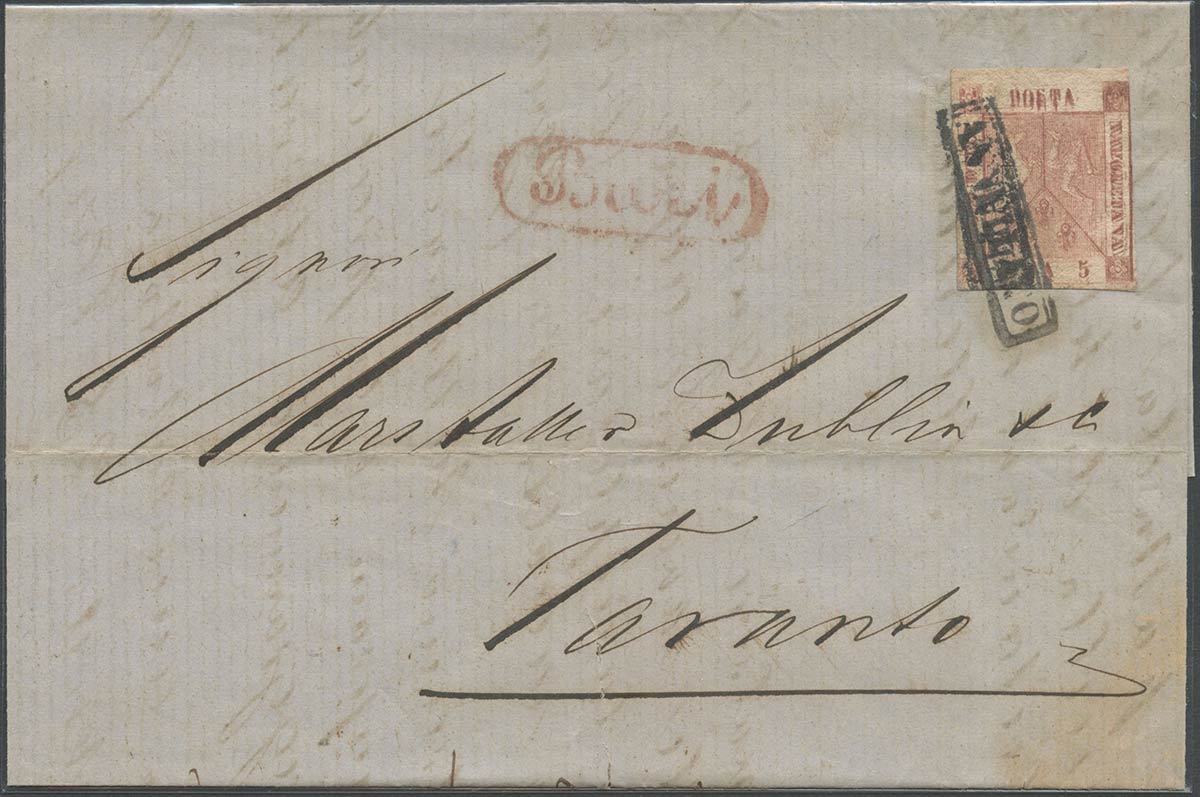 Bari
POSTA
NAPOLETANA
G. 5
ANNULLATO
Signori
Marstaller Dublin & C
Taranto